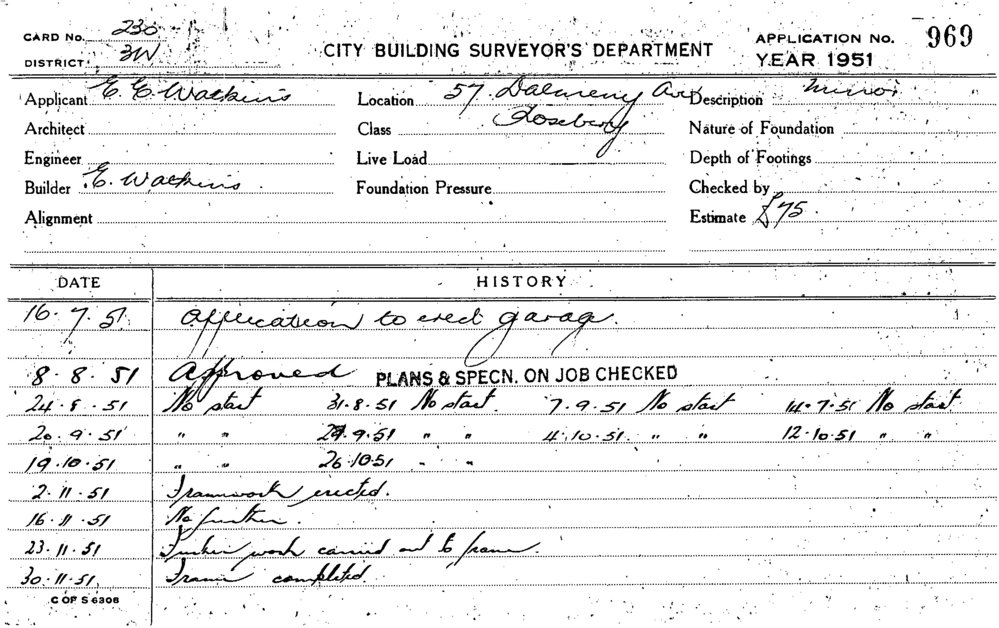 CARD No. 230
DISTRICT 3W
CITY BUILDING SURVEYOR'S DEPARTMENT
APPLICATION No. 969
YEAR 1951
Applicant E. E. Watkins
Location 57 Dalmeny Ave
Rosebery
Description Minor
Architect
Class
Nature of Foundation
Engineer
Live Load
Depth of Footings
Builder E. Watkins
Foundation Pressure
Checked by
Alignment
Estimate £75
DATE HISTORY
16.7.51 Application to erect garage.
8.8.51 Approved PLANS & SPECN. ON JOB CHECKED
24.8.51 No start 31.8.51 No start 7.9.51 No start 14.7.51 No start
20.9.51 " " 27.9.51 " " 4.10.51 " " 12.10.51 " "
19.10.51 " " 26.10.51 " "
2.11.51 Framework erected.
16.11.51 No further.
23.11.51 Further work carried out to frame.
30.11.51 Frame completed
C OF S 6306